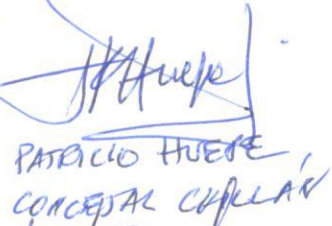 PATRICIO HUEPE,
CONCEJAL CHILLÁN